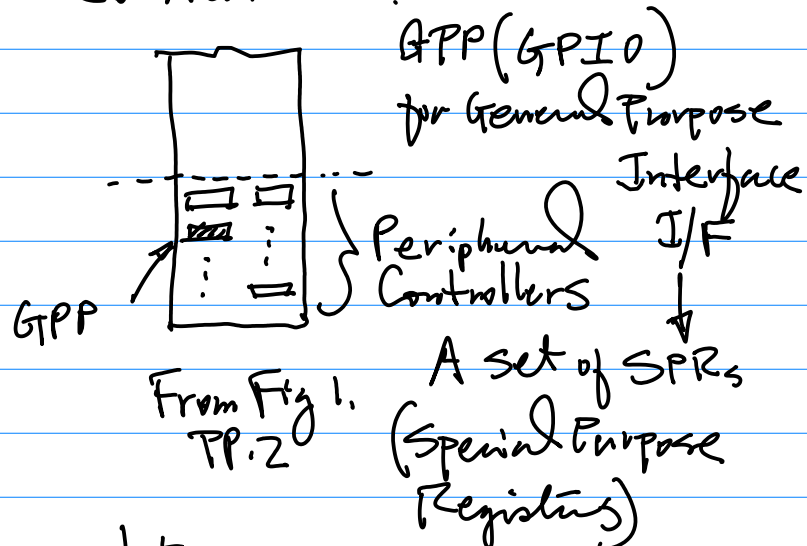 GPP (GPIO)
for General Purpose
Interface
I/F
Peripheral
Controllers
GPP
A set of SPRs
From Fig 1.
PP.2
(Special Purpose
Registers)